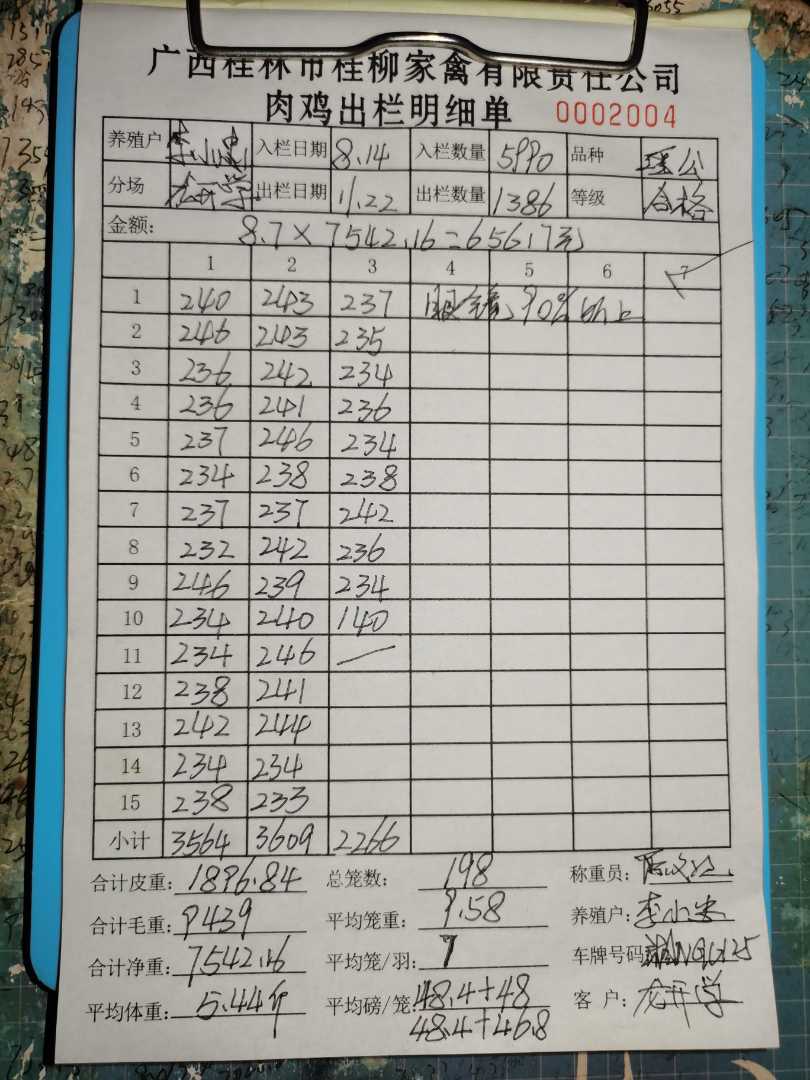 广西桂林市桂柳家禽有限责任公司
肉鸡出栏明细单 0002004
养殖户 李小忠 入栏日期 8.14 入栏数量 5990 品种 瑶公
分场 龙开学 出栏日期 11.22 出栏数量 1386 等级 合格
金额: 8.7×7542.16=65617元
1 2 3 4 5 6 7
1 240 243 237 90% 以上
2 246 243 235
3 236 242 234
4 236 241 236
5 237 246 234
6 234 238 238
7 237 237 242
8 232 242 236
9 246 239 234
10 234 240 140
11 234 246 —
12 238 241
13 242 244
14 234 234
15 238 233
小计 3564 3609 2266
合计皮重: 1896.84 总笼数: 198 称重员:
合计毛重: 9439 平均笼重: 9.58 养殖户: 李小忠
合计净重: 7542.16 平均笼/羽: 7 车牌号码:
平均体重: 5.44斤 平均磅/笼: 48.4+48 客 户: 龙开学
48.4+46.8